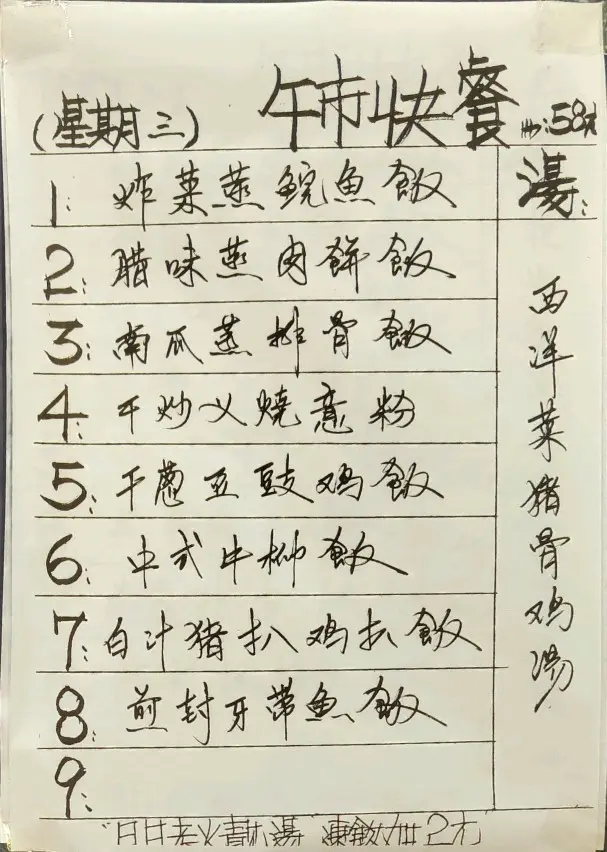 (星期三) 午市快餐 58元
1: 炸菜蒸鲩魚飯
2: 腊味蒸肉餅飯
3: 南瓜蒸排骨飯
4: 干炒乂燒意粉
5: 干葱豆豉鸡飯
6: 中式牛柳飯
7: 白汁猪扒鸡扒飯
8: 煎封牙帶魚飯
9:
湯:
西洋菜猪骨鸡湯
"日日老火靚湯" 凍飲加5元